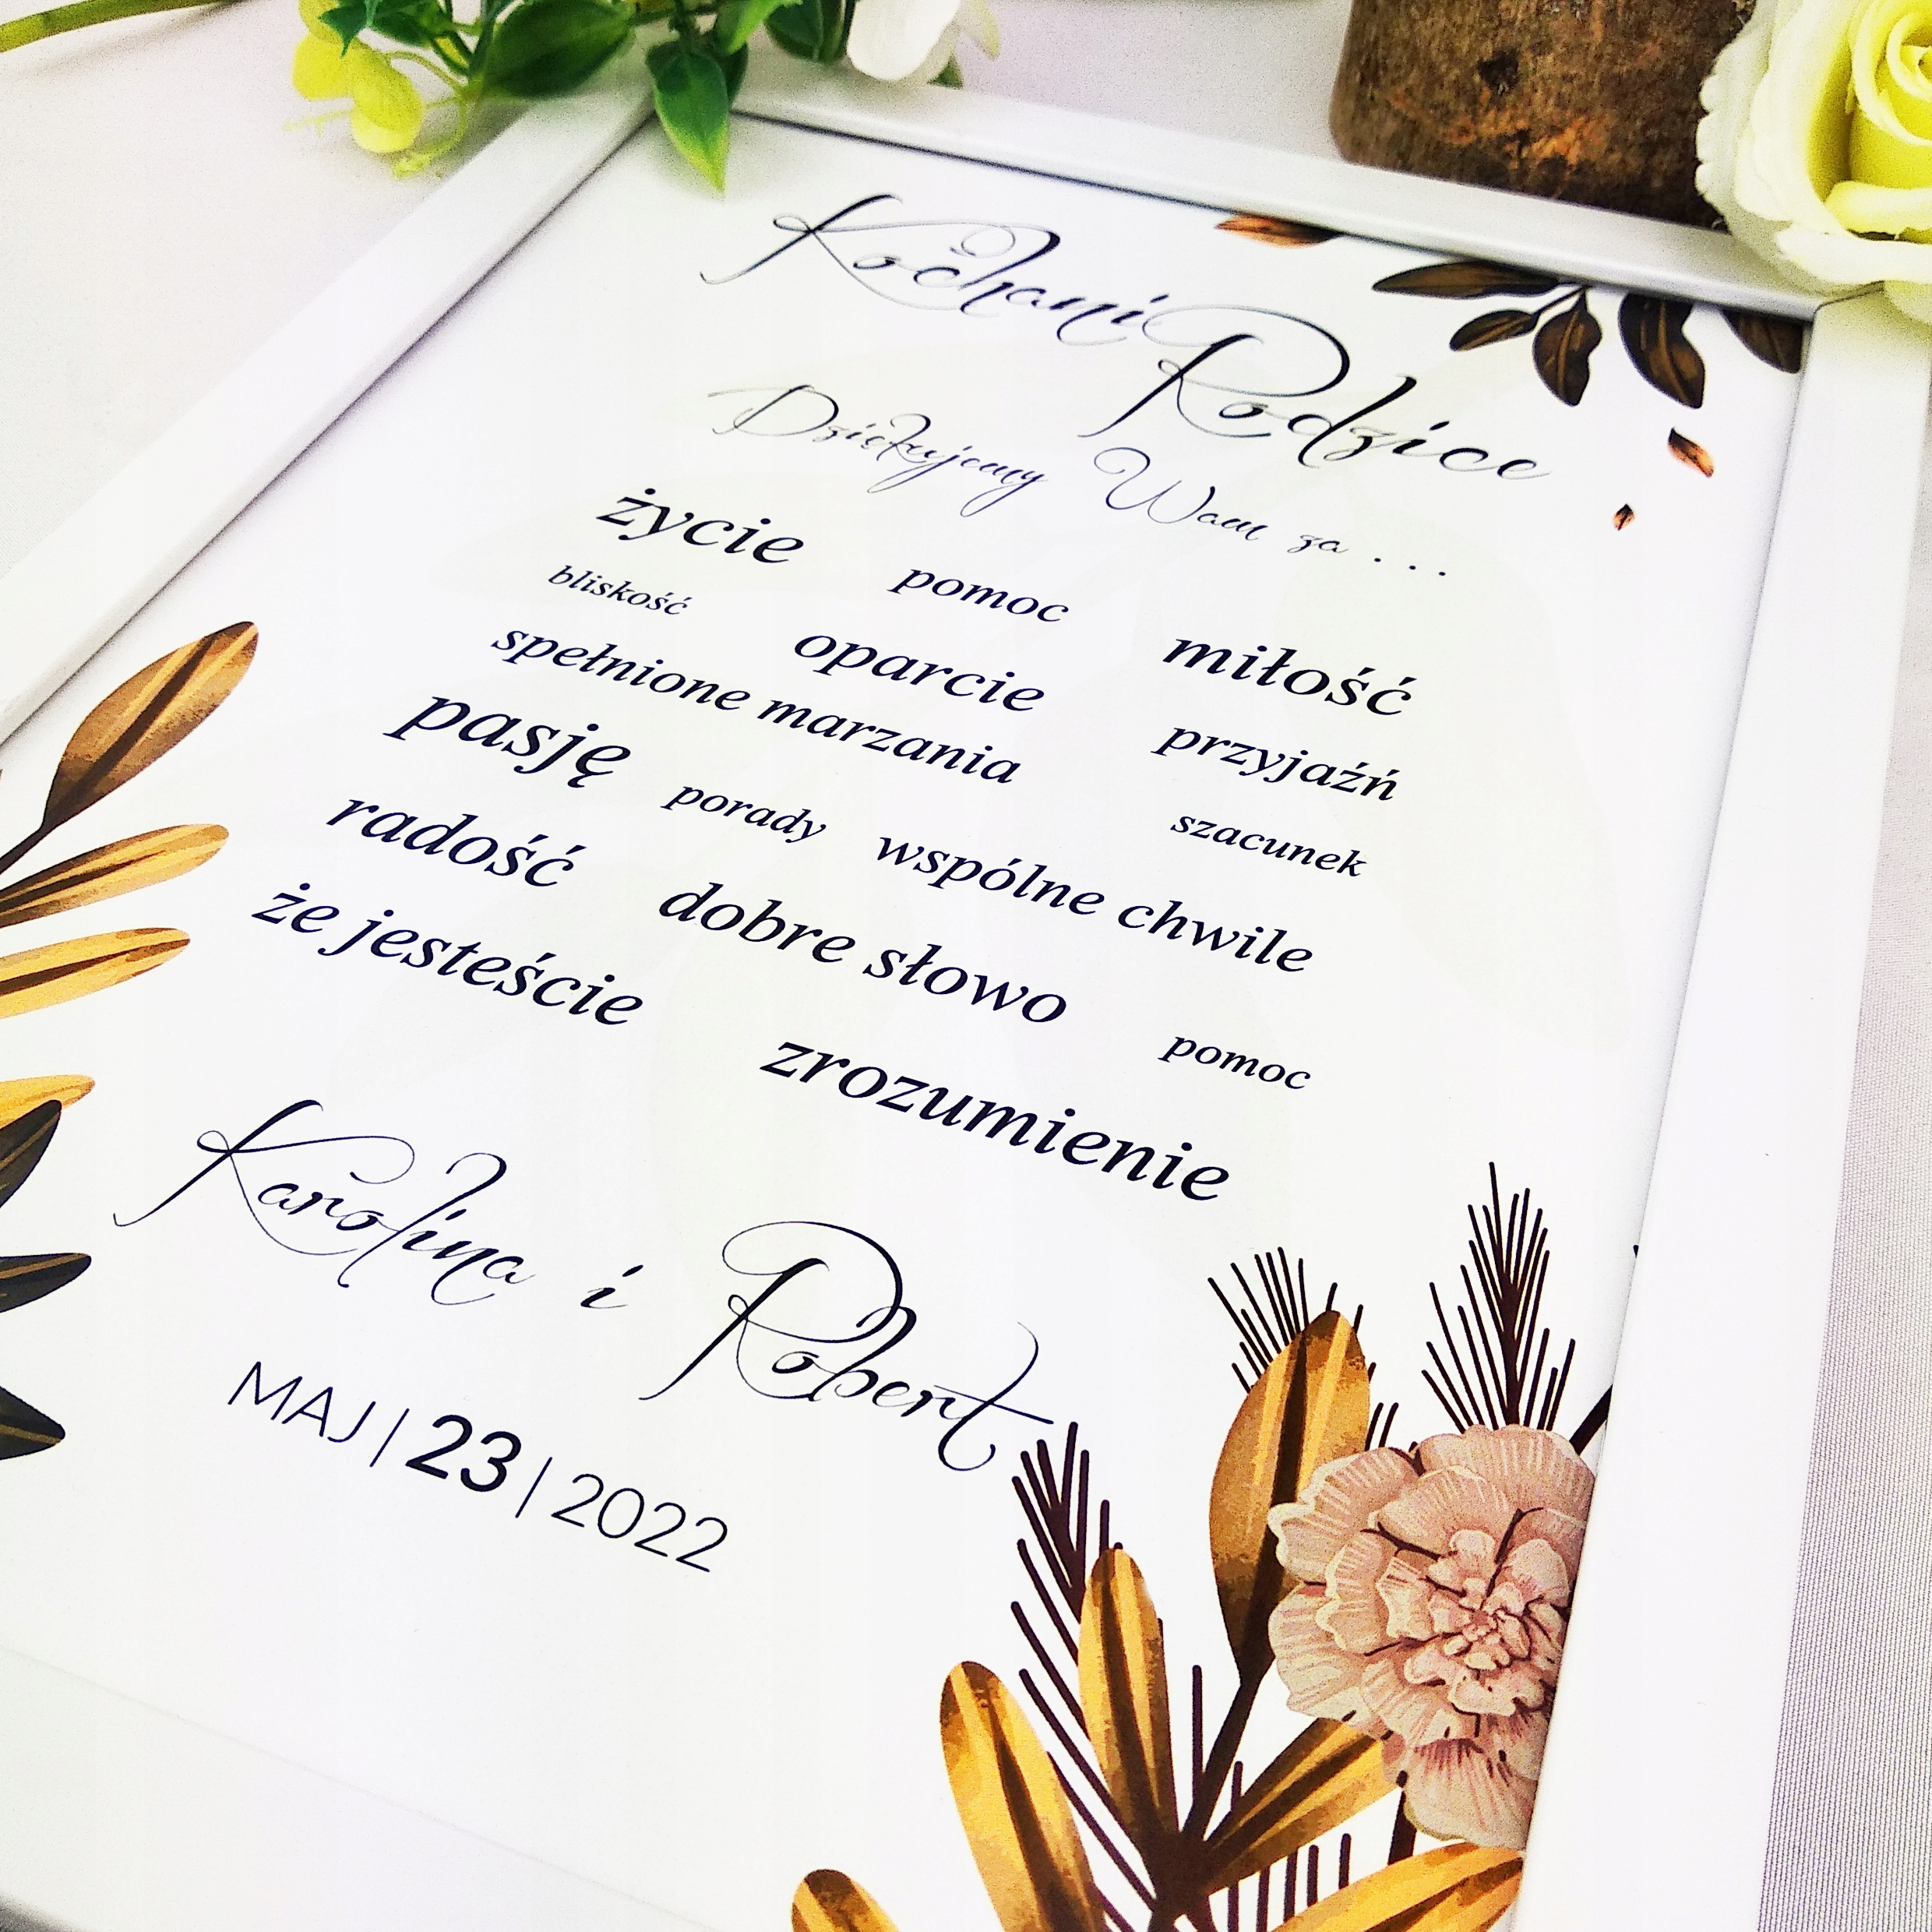 Kochani Rodzice
Dziękujemy Wam za ...
życie pomoc miłość
bliskość oparcie przyjaźń
spełnione marzania szacunek
pasję porady wspólne chwile
radość dobre słowo pomoc
że jesteście zrozumienie
Karolina i Robert
MAJ | 23 | 2022